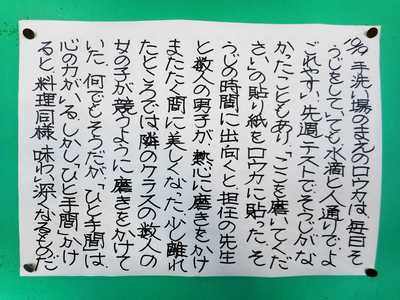 1%9 手洗い場のまえのロウカは、毎日そ
うじをしていても、水滴と人通りでよ
ごれやすい。先週、テストでそうじがな
かったこともあり、「ここを磨いてくだ
さい」の貼り紙をロウカに貼った。そ
うじの時間に出向くと、担任の先生
と数人の男子が、熱心に磨きをかけ
またたく間に美しくなった。少し離れ
たところでは、隣のクラスの数人の
女の子が競うように磨きをかけて
いた。何でもそうだが、「ひと手間」は、
心の力がいる。しかし、「ひと手間」かけ
ると、料理同様、味わい深くなるものだ